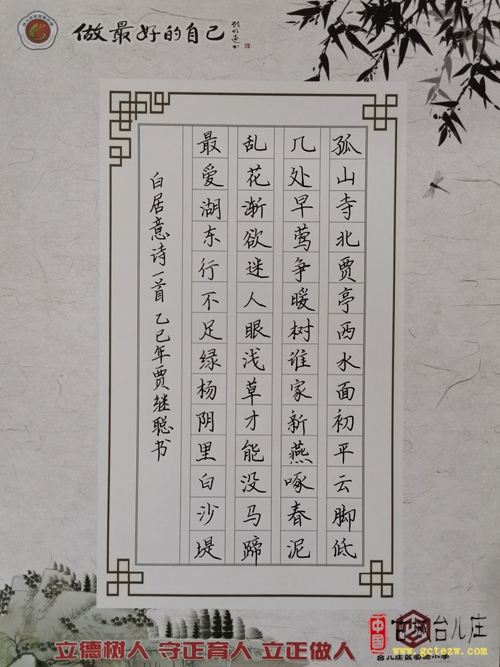 做最好的自己
孤山寺北贾亭西水面初平云脚低
几处早莺争暖树谁家新燕啄春泥
乱花渐欲迷人眼浅草才能没马蹄
最爱湖东行不足绿杨阴里白沙堤
白居意诗一首 乙巳年贾继聪书
立德树人 守正育人 立正做人
中国 古城台儿庄
www.gctezw.com